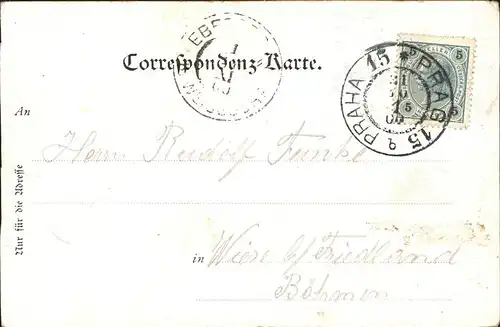 Correspondenz-Karte.
PRAHA 15 * PRAG 15
5 5
5 5
An
Herrn Rudolf Funke
in Wiese b/ Friedland
Böhmen
Nur für die Adresse